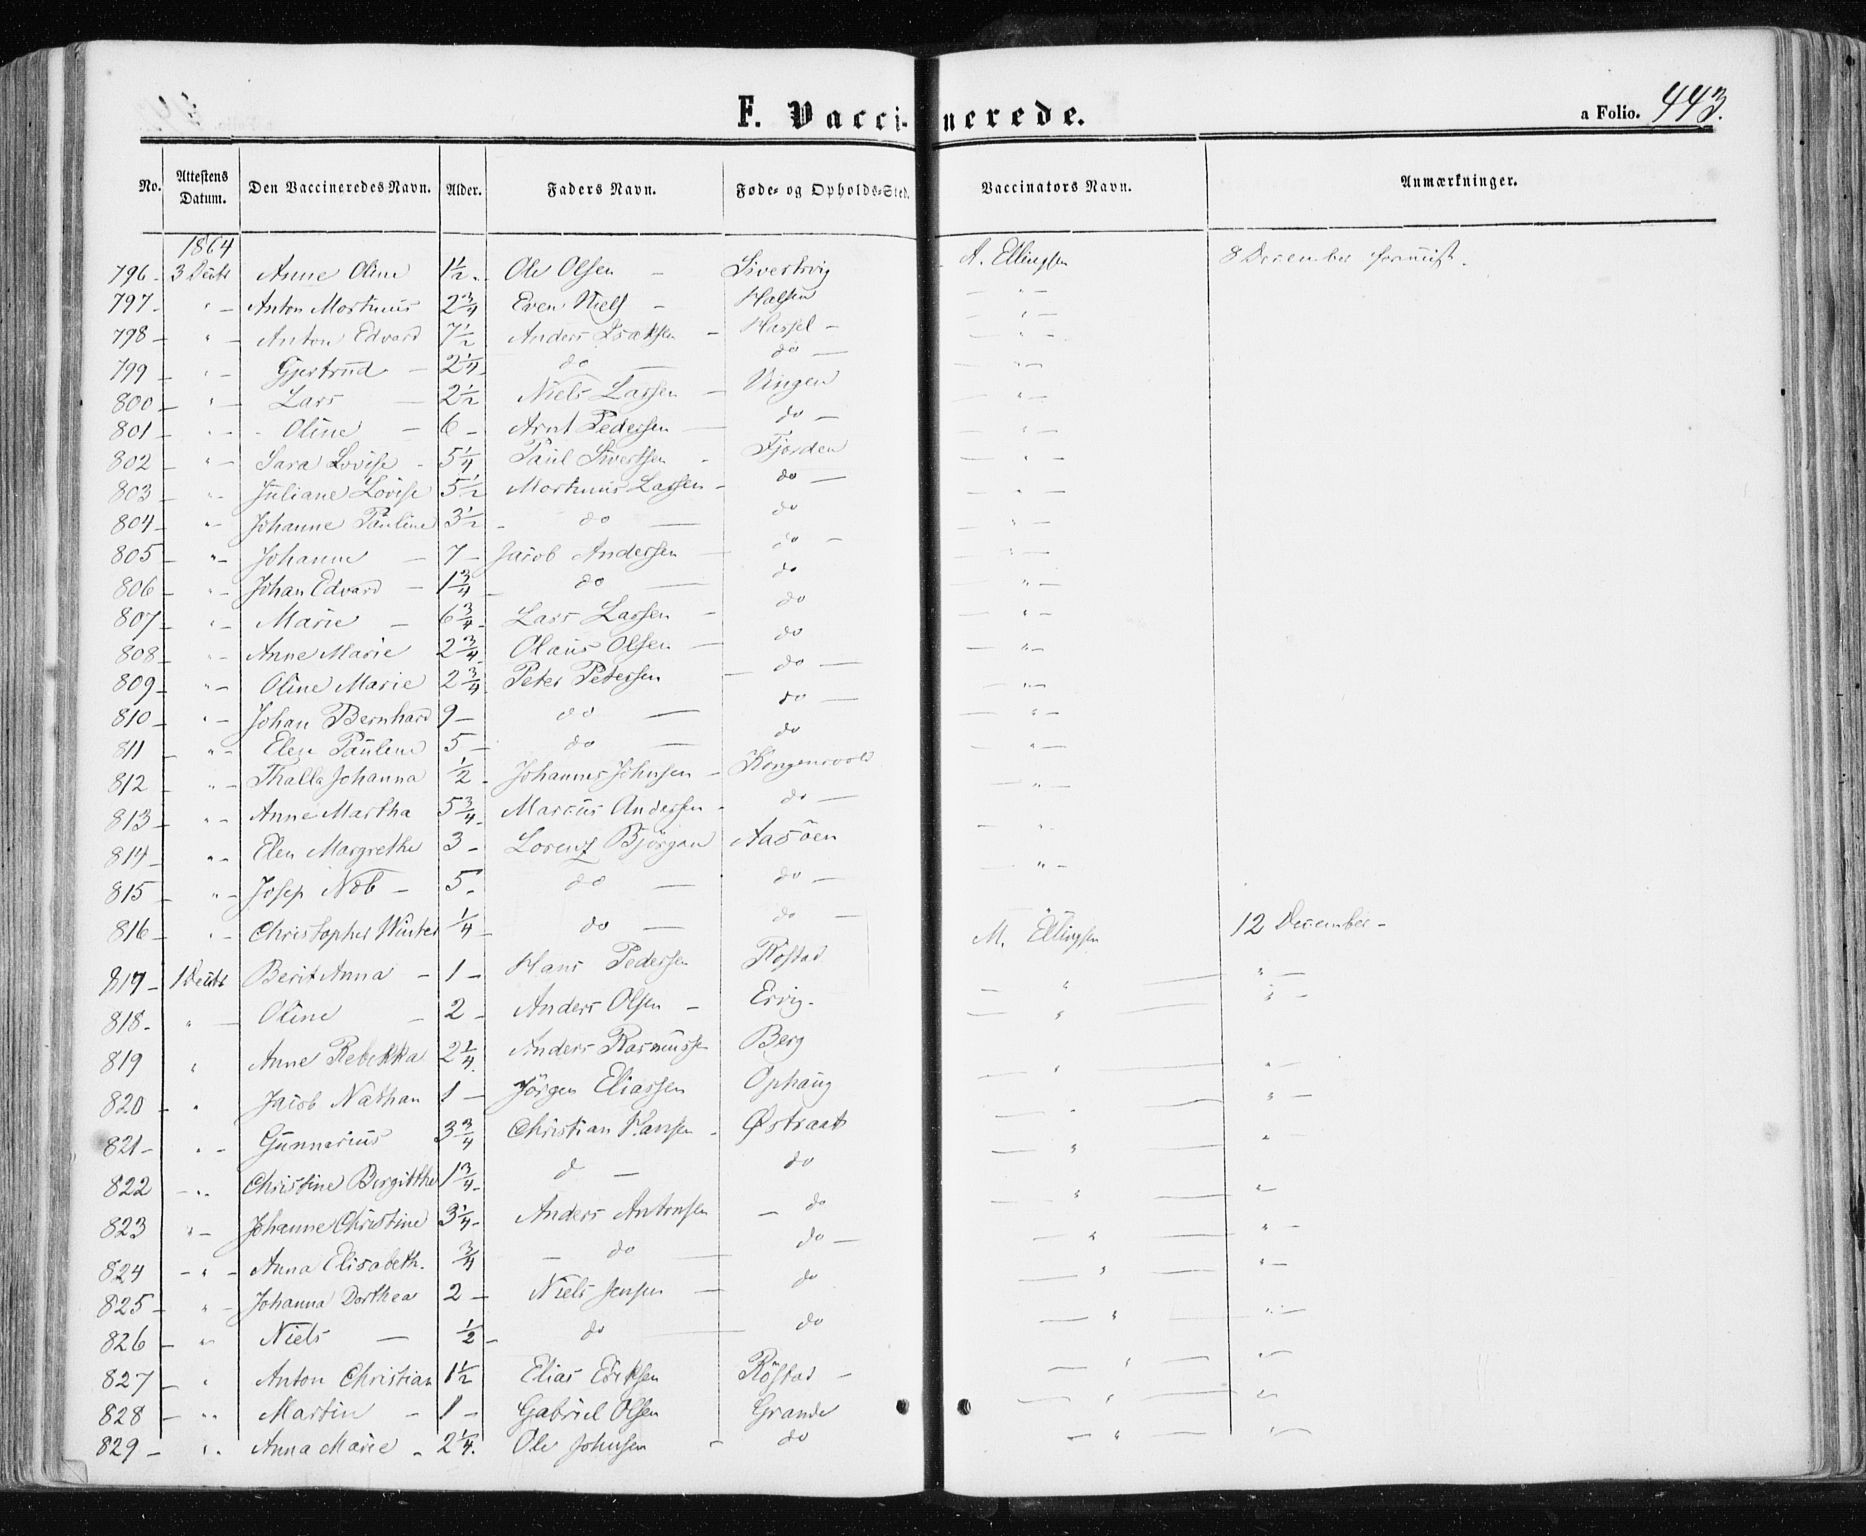 F. Vaccinerede.
a Folio. 443.
No. Attestens Datum. Den Vaccineredes Navn. Alder. Faders Navn. Føde- og Opholds-Sted. Vaccinators Navn. Anmærkninger.
1864
796- 3 Anne Oline 1½. Ole Olsen - A. Ellingsen 8 December
797- " - Anton Martinus 2¾ Even Niels - Halsen - " -
798- " - Anton Edvard 7½ Anders Isaksen - Hassel - - " -
799 - " - Gjertrud - 2¼ do - do - - " -
800 - " - Lars - 2½ Niels Larsen - Vingen - " -
801 - " - Oline - 6 - Arnt Pedersen - do - - " -
802 - " - Sara Lovise - 5¼ Paul Sivertsen - Fjorden - " -
803 - " - Juliane Lovise 5½ Martinus Larsen - do - - " -
804 - " - Johanne Pauline 3½ - do - do - " -
805 - " - Johanne - 7 - Jacob Andersen - do - - " -
806 - " - Johan Edvard - 1¾ - do - do - " -
807 - " - Marie - 6¾ - Lars Larsen - do - " -
808 - " Anne Marie 2¾ Olaus Olsen - do - " -
809 - " - Oline Marie 2¾ Peter Petersen - do - - " -
810 - " - Johan Bernhard 9 - do - do - - " -
811 - " - Elen Pauline 5 - do - do - " -
812 - " - Thalla Johanna ½ - Johannes Johnsen - Kongensvold - " -
813 - " - Anne Martha 5¾ Marcus Andersen - do - - " -
814 - " - Elen Margrethe 3 - Lorenz Bjørgan Aasøen - " -
815 - " - Josep - 5 - do - do -
816 - " - Christopher Winter ¼ - do - do - M. Ellingsen 12 December -
817 - 1 Berit Anna - 1 - Hans Pedersen Røstad - " - " -
818 - " - Oline - 2 - Anders Olsen - Ervig - - " - " -
819 " Anne Rebekka 2¼ Anders Rasmussen Berg - " - " -
820 - " Jacob Nathan 1 - Jørgen Eliassen Ophaug - " - " -
821 - " - Gunnerius 3¾ Christian Hansen - Østraat - " - " -
822 - " Christine Birgitthe 1¾ - d - do - " - " -
823 " - Johanne Christine 3¼ - Anders Antonsen - do - " - " -
824 - " - Anna Elisabeth. ¾ - do - do - - " - " -
825 - " - Johanna Dorthea 2 - Niels Jensen - do - " - " -
826 - " Niels - ½ - do - do - " - " -
827 - " Anton Christian 1½ Elias Eriksen Røstad - - " - " -
828 - " Martin - 1 - Gabriel Olsen Grande - " - " -
829 - " Anna Marie - 2¼. Ole Johnsen - do - " - " -